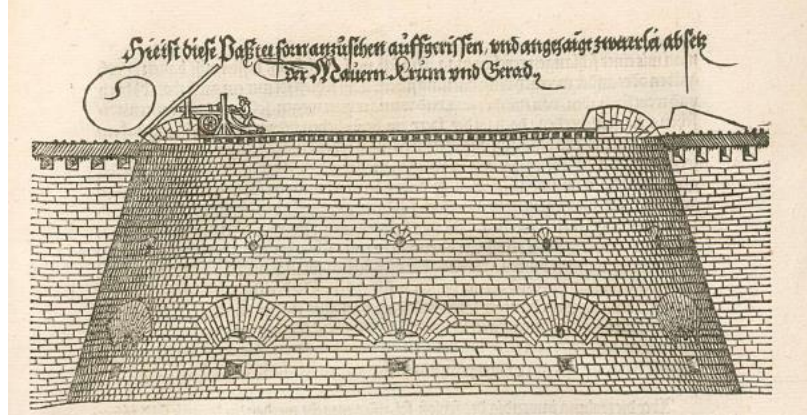 Hie ist diese Pastei forn anzůsehen aůffgerissen, vnd angezaigt zweierlai absetz
der Maůern Krum vnd Gerad